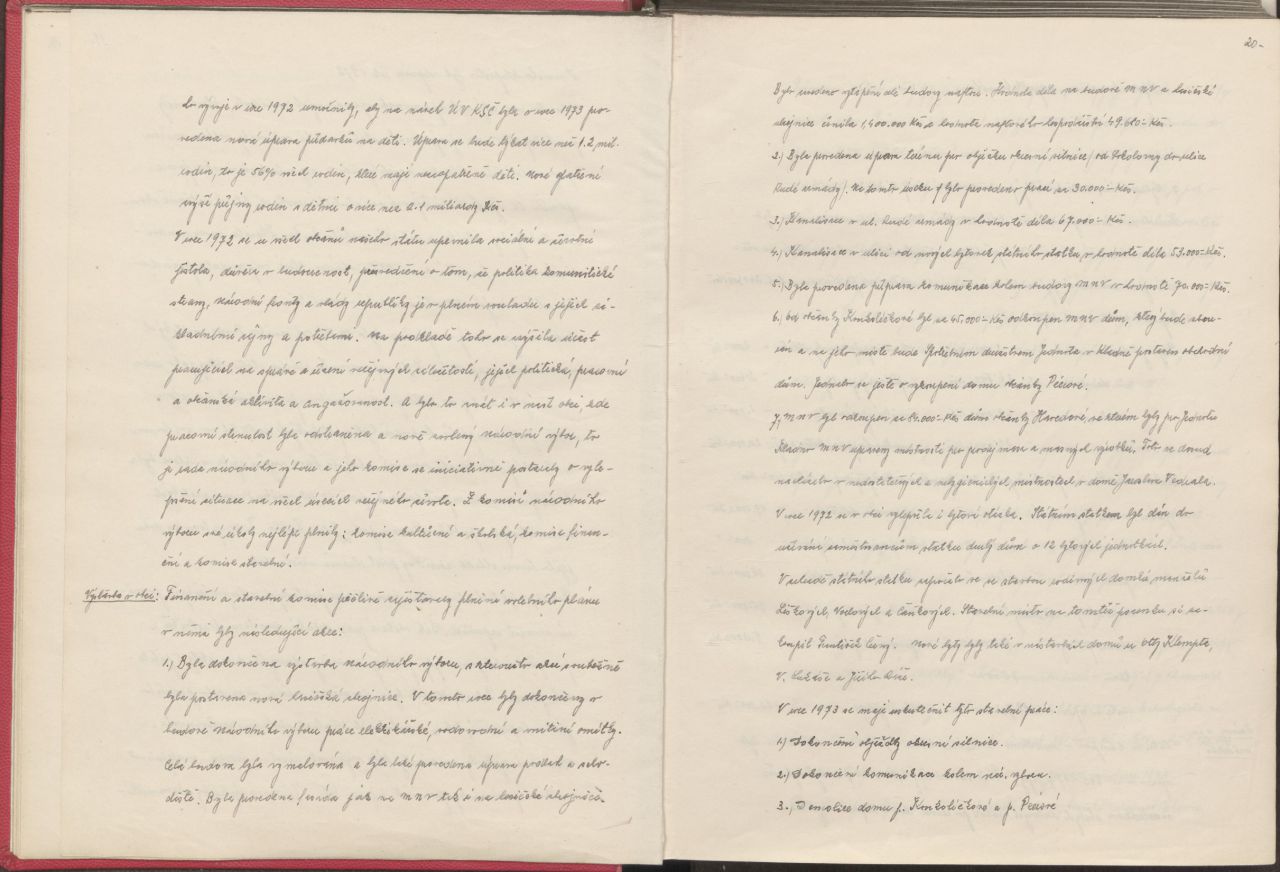 ho vývoje v roce 1972 umožnily, aby na návrh ÚV KSČ byla v roce 1973 pro-
vedena nová úprava přídavků na děti. Úprava se bude týkat více než 1.2 mil.
rodin, to je 56% všech rodin, které mají nezaopatřené děti. Nové opatření
zvýší příjmy rodin s dětmi o více než 2.1 miliardy Kčs.
V roce 1972 se u všech občanů našeho státu upevnila sociální a životní
jistota, důvěra v budoucnost, přesvědčení o tom, že politika komunistické
strany, Národní fronty a vlády republiky je v plném souladu s jejich zá-
kladními zájmy a potřebami. Na podkladě toho se zvýšila účast
pracujících na správě a řízení veřejných záležitostí, jejich politická, pracovní
a občanská aktivita a angažovanost. A bylo to znát i v naší obci, kde
pracovní strnulost byla odstraněna a nově zvolený národní výbor, to
je rada národního výboru a jeho komise se iniciativně postaraly o zlep-
šení situace na všech úsecích veřejného života. Z komisí národního
výboru své úkoly nejlépe plnily: komise kulturní a školská, komise finan-
ční a komise stavební.
Výstavba v obci: Finanční a stavební komise pečlivě zajišťovaly plnění volebního plánu
v němž byly následující akce:
1.) Byla dokončena výstavba národního výboru, s kteroužto akcí současně
byla postavena nová hasičská zbrojnice. V tomto roce byly dokončeny v
budově národního výboru práce elektrikářské, vodovodní a vnitřní omítky.
Celá budova byla vymalována a byla také provedena úprava podlah a scho-
diště. Byla provedena fasáda jak na MNV tak i na hasičské zbrojnici.
20-
Bylo uvedeno vytápění celé budovy naftou. Hodnota díla na budově MNV a hasičské
zbrojnice činila 1,400.000 Kčs a hodnota naftového hospodářství 49.610.- Kčs.
2.) Byla provedena úprava terénu pro objížďku okresní silnice / od Sokolovny do ulice
Rudé armády/. Na tomto úseku bylo provedeno prací za 30.000.- Kčs.
3.) Kanalisace v ul. Rudé armády v hodnotě díla 67.000.- Kčs.
4.) Kanalisace v ulici od nových bytovek státního statku, v hodnotě díla 53.000.- Kčs.
5.) Byla provedena příprava komunikace kolem budovy MNV v hodnotě 70.000.- Kčs.
6.) Od občanky Krukoličkové byl za 45.000.- Kčs odkoupen MNV dům, který bude zbou-
rán a na jeho místě bude Spotřebním družstvem Jednota v Kladně postaven obchodní
dům. Jednalo se ještě o vykoupení domu občanky Péciové.
7.) MNV byl odkoupen za dům občanky Havdové, ve kterém byly pro Jednotu
Kladno MNV upraveny místnosti pro prodej masa a masných výrobků. Toto se dosud
nacházelo v nedostatečných a nehygienických místnostech v domě Jaroslava Vedrala.
V roce 1972 se v obci vylepšila i bytová otázka. Státním statkem byl dán do
užívání zaměstnancům statku druhý dům o 12 bytových jednotkách.
V zahradě státního statku započalo se se stavbou rodinných domků manželů
Liškových, Vodových a Čiškových. Stavební místo na tomtéž pozemku si za-
koupil František Černý. Nové byty byly také v nástavbách domů u Otty Klempta,
V. Lukáše a
V roce 1973 se mají uskutečnit tyto stavební práce:
1.) Dokončení objížďky okresní silnice.
2.) Dokončení komunikace kolem nár. výboru.
3.) Demolice domu p. Krukoličkové a p. Péciové